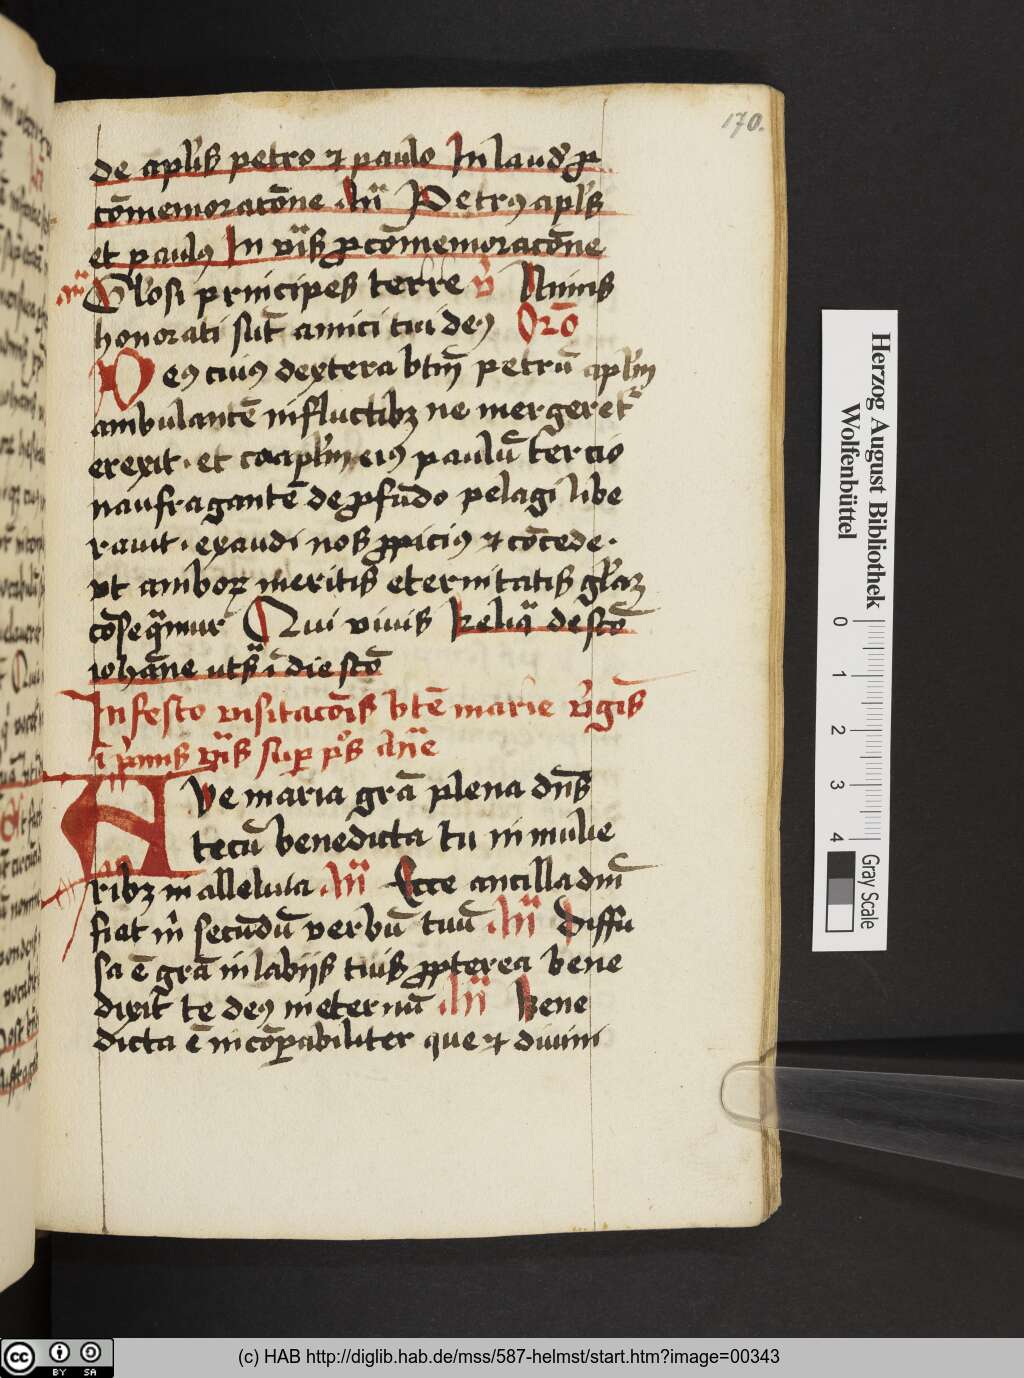 170.
de apl'is petro ⁊ paulo In laud' ꝓ
cōmemoracōne An̄ Petrꝰ apl's
et paulꝰ In vīs ꝓ cōmemoracōne
an̄ Gl'osi principes terre v̄ Nimis
honorati sūt amici tui deꝰ Orō
Deꝰ cuiꝰ dextera btm̄ petrū apl'm
ambulantē in fluctibꝫ ne mergeret᷑
erexit · et coapl'm eiꝰ paulū tercio
naufragantē de ꝓfūdo pelagi libe
rauit · exaudi nos ꝓpiciꝰ ⁊ cōcede ·
vt amboꝝ meritis eternitatis gl'iaꝫ
cōseqͣmur Qui viuis Reliqͣ de scō
iohāne vts̄ ī die scō
In festo visitacōis btē marie v̓gīs
ī p̓mis v̄is sup̱ p̄s an̄e
Ave maria grā plena dn̄s
tecū benedicta tu in mulie
ribꝫ in alleluia An̄ Ecce ancilla dnī
fiat m̓ secūdū verbū tuū An̄ Diffu
sa ē grā in labijs tuis ꝓpterea bene
dixit te deꝰ in eternū An̄ Bene
dicta ē incōꝑabiliter que ⁊ diuini
Herzog August Bibliothek
Wolfenbüttel
0
1
2
3
4
Gray Scale
cc
BY SA
(c) HAB http://diglib.hab.de/mss/587-helmst/start.htm?image=00343